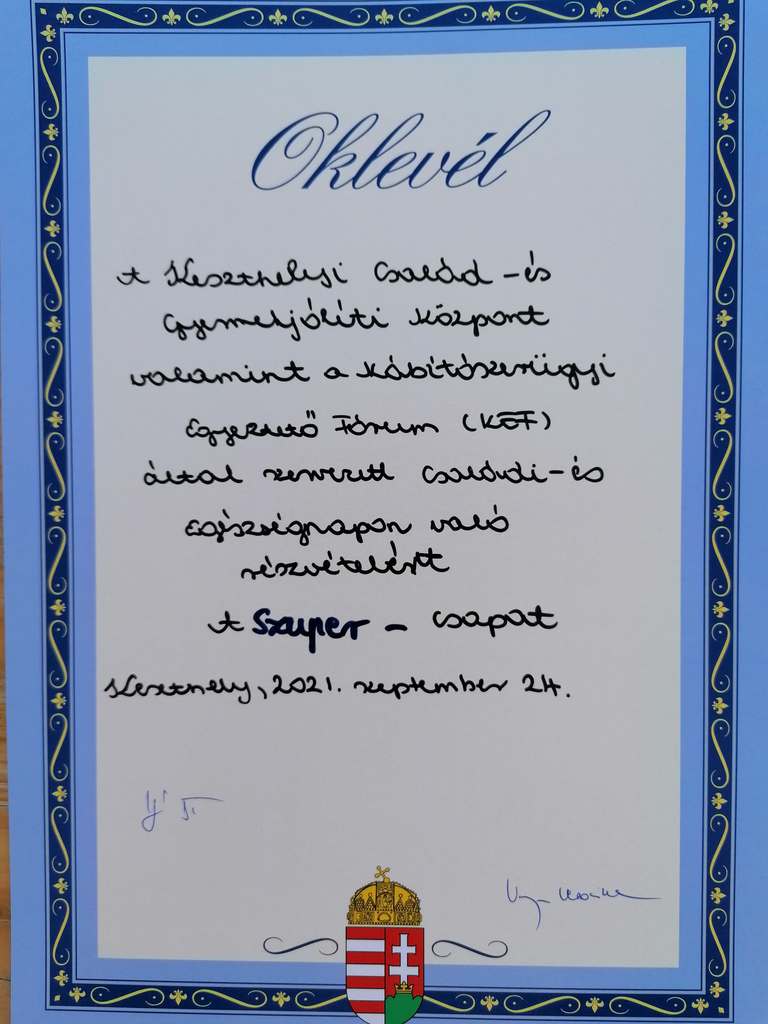 Oklevél
A Keszthelyi Család - és
Gyermekjóléti Központ
valamint a Kábítószerügyi
Egyeztető Fórum (KEF)
által szervezett Családi - és
Egészségnapon való
részvételért
A Szuper - csapat
Keszthely, 2021. szeptember 24.